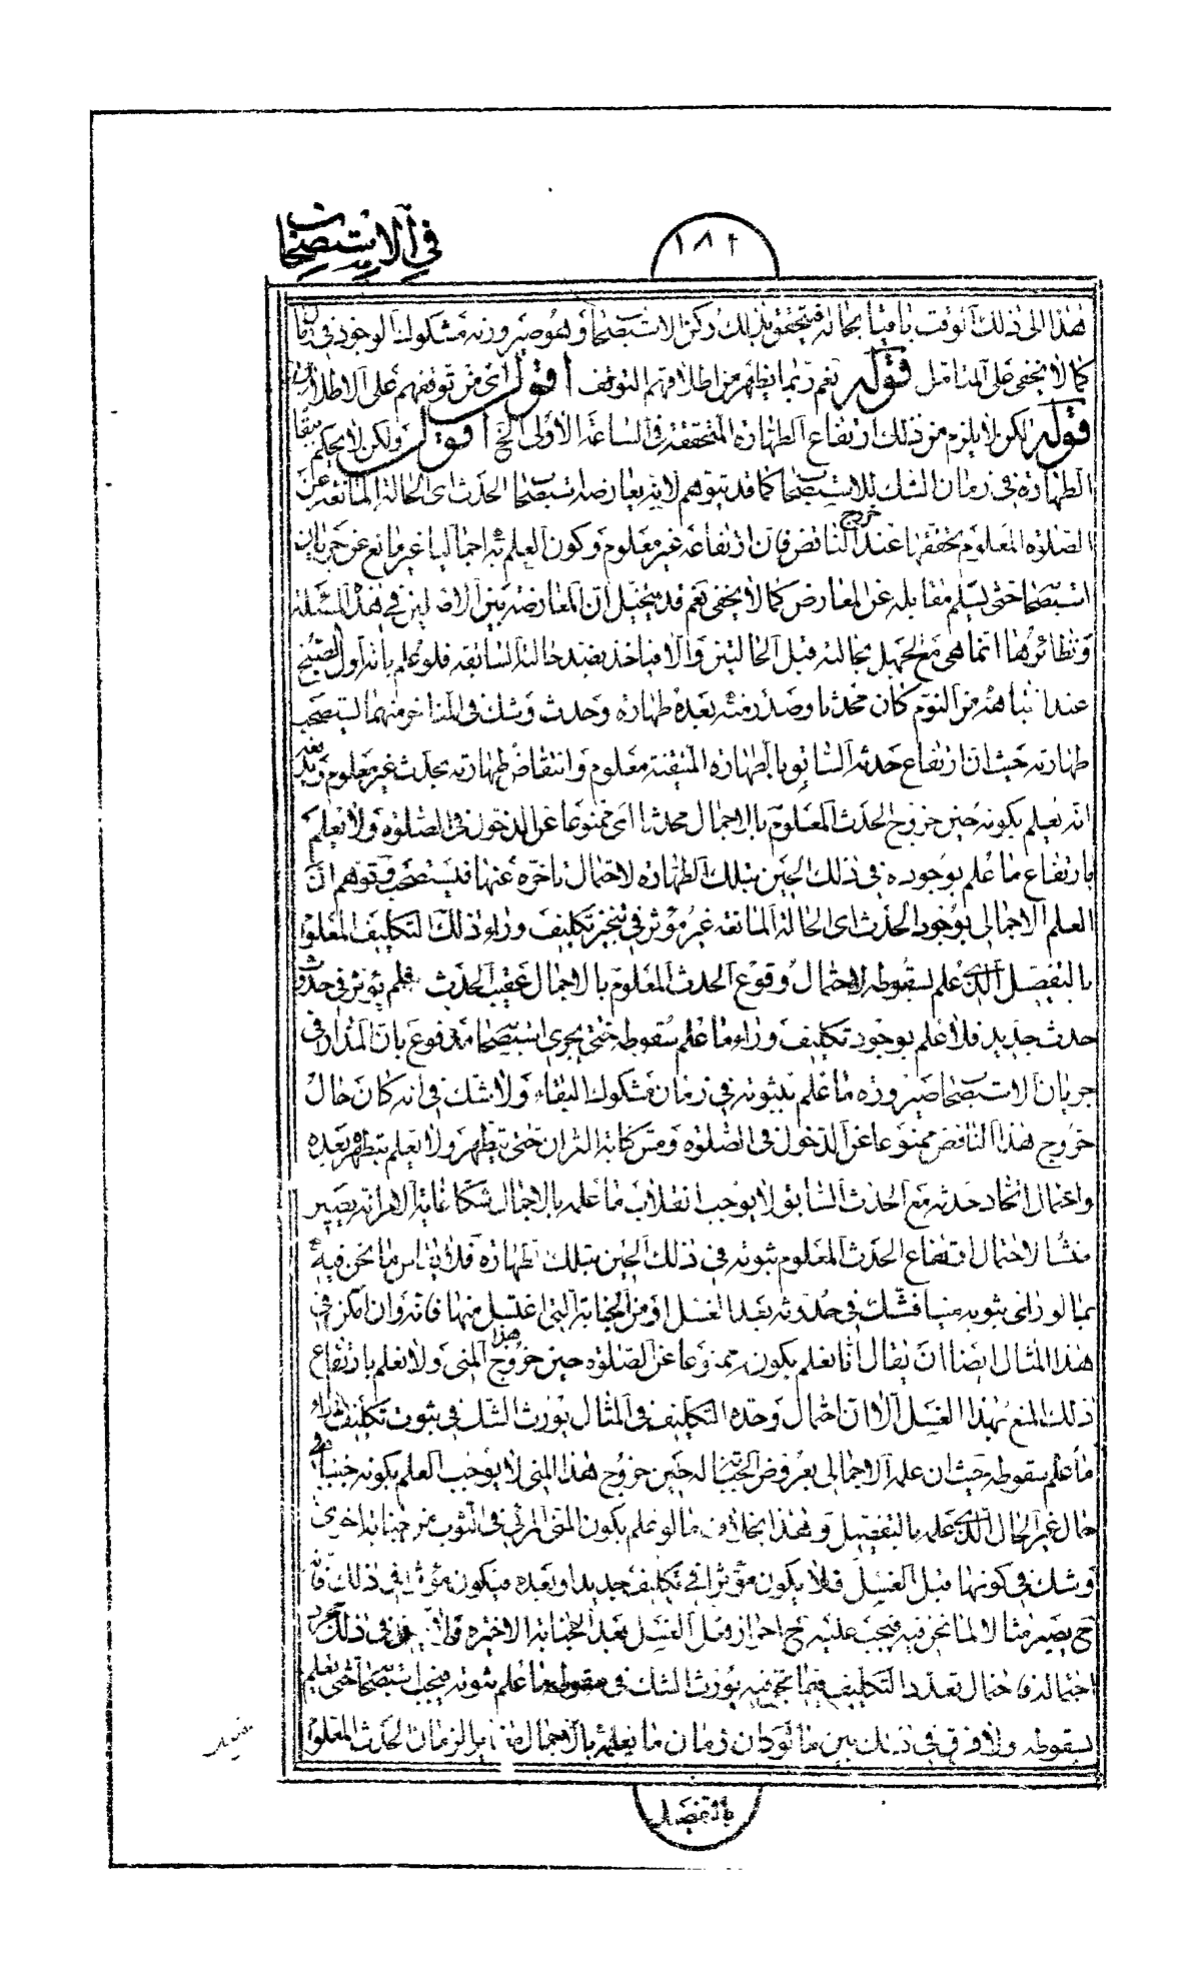 في الاستصحاب
١٨٢
هذا الى ذلك الوقت باقيا بحاله فيتحقق بذلك ركن الاستصحاب وهو صيرورته مشكوك الوجود في زمان
كما لا يخفى على المتامل قوله نعم ربما يظهر من اطلاقهم التوقف اقول اى من توقفهم على الاطلاق
قوله لكن لا يلزم من ذلك ارتفاع الطهارة المتحققة في الساعة الاولى الخ اقول ولكن لا يحكم ببقاء
الطهارة في زمان الشك للاستصحاب كما قد يتوهم لانه يعارضه استصحاب الحدث اى الحالة المانعة عن
الصلوة المعلوم تحققها عند خروج الناقض فان ارتفاعه غير معلوم وكون العلم به اجماليا غير مانع عن جريان
استصحابه حتى يسلم مقابله عن المعارض كما لا يخفى نعم قد يتخيل ان المعارضة بين الاصلين في هذه المسئلة
ونظائرها انما هى مع الجهل بحالته قبل الحالتين والا فياخذ بضد حالته السابقة فلو علم بانه اول الصبح
عند انتباهه من النوم كان محدثا وصدر منه بعده طهارة وحدث وشك في المتاخر منهما يستصحب
طهارته حيث ان ارتفاع حدثه السابق بالطهارة المتيقنة معلوم وانتقاض طهارته بحدث غير معلوم ويدفعه
انه يعلم بكونه حين خروج الحدث المعلوم بالاجمال محدثا اى ممنوعا عن الدخول في الصلوة ولا يعلم
بارتفاع ما علم بوجوده في ذلك الحين بتلك الطهارة لاحتمال تاخره عنها فيستصحب وتوهم ان
العلم الاجمالى بوجود الحدث اى الحالة المانعة غير مؤثر في تنجز تكليف وراء ذلك التكليف المعلوم
بالتفصيل الذى علم بسقوطه لاحتمال وقوع الحدث المعلوم بالاجمال عقيب الحدث فلم يؤثر في حدوث
حدث جديد فلا علم بوجود تكليف وراء ما علم سقوطه حتى يجرى استصحابه مدفوع بان المدار في
جريان الاستصحاب صيرورة ما علم بثبوته في زمان مشكوك البقاء ولا شك في انه كان حال
خروج هذا الناقض ممنوعا عن الدخول في الصلوة ومس كتابة القران حتى يتطهر ولا يعلم بتطهره بعده
واحتمال اتحاد حدثه مع الحدث السابق لا يوجب انقلاب ما علمه بالاجمال شكا غاية الامر انه يصير
منشا لاحتمال ارتفاع الحدث المعلوم ثبوته في ذلك الحين بتلك الطهارة فلا يقاس ما نحن فيه
بما لو راى بثوبه منيا فشك في حدوثه بعد الغسل او من الجنابة التى اغتسل منها فانه وان امكن في
هذا المثال ايضا ان يقال انا نعلم بكونه ممنوعا عن الصلوة حين خروج هذا المنى ولا نعلم بارتفاع
ذلك المنع بهذا الغسل الا ان احتمال وحدة التكليف في المثال يورث الشك في ثبوت تكليف وراء
ما علم سقوطه حيث ان علمه الاجمالى بعروض الجنابة له حين خروج هذا المنى لا يوجب العلم بكونه جنبا في
حال غير الحال الذى علمه بالتفصيل وهذا بخلاف ما لو علم بكون المنى المرئى في الثوب غير جنابة اخرى
وشك في كونها قبل الغسل فلا يكون مؤثرا في تكليف جديد او بعده فيكون مؤثرا في ذلك فانه
ح يصير مثالا لما نحن فيه فيجب عليه ح احراز الغسل بعد الجنابة الاخيرة ولا في ذلك مجرد
احتماله فاحتمال تعدد التكليف فيما نحن فيه يورث الشك في سقوط ما علم ثبوته فيجب استصحابه حتى يعلم
بسقوطه ولا فرق في ذلك بين ما لو كان زمان ما يعلمه بالاجمال مغايرا لزمان الحدث المعلوم
بالتفصيل